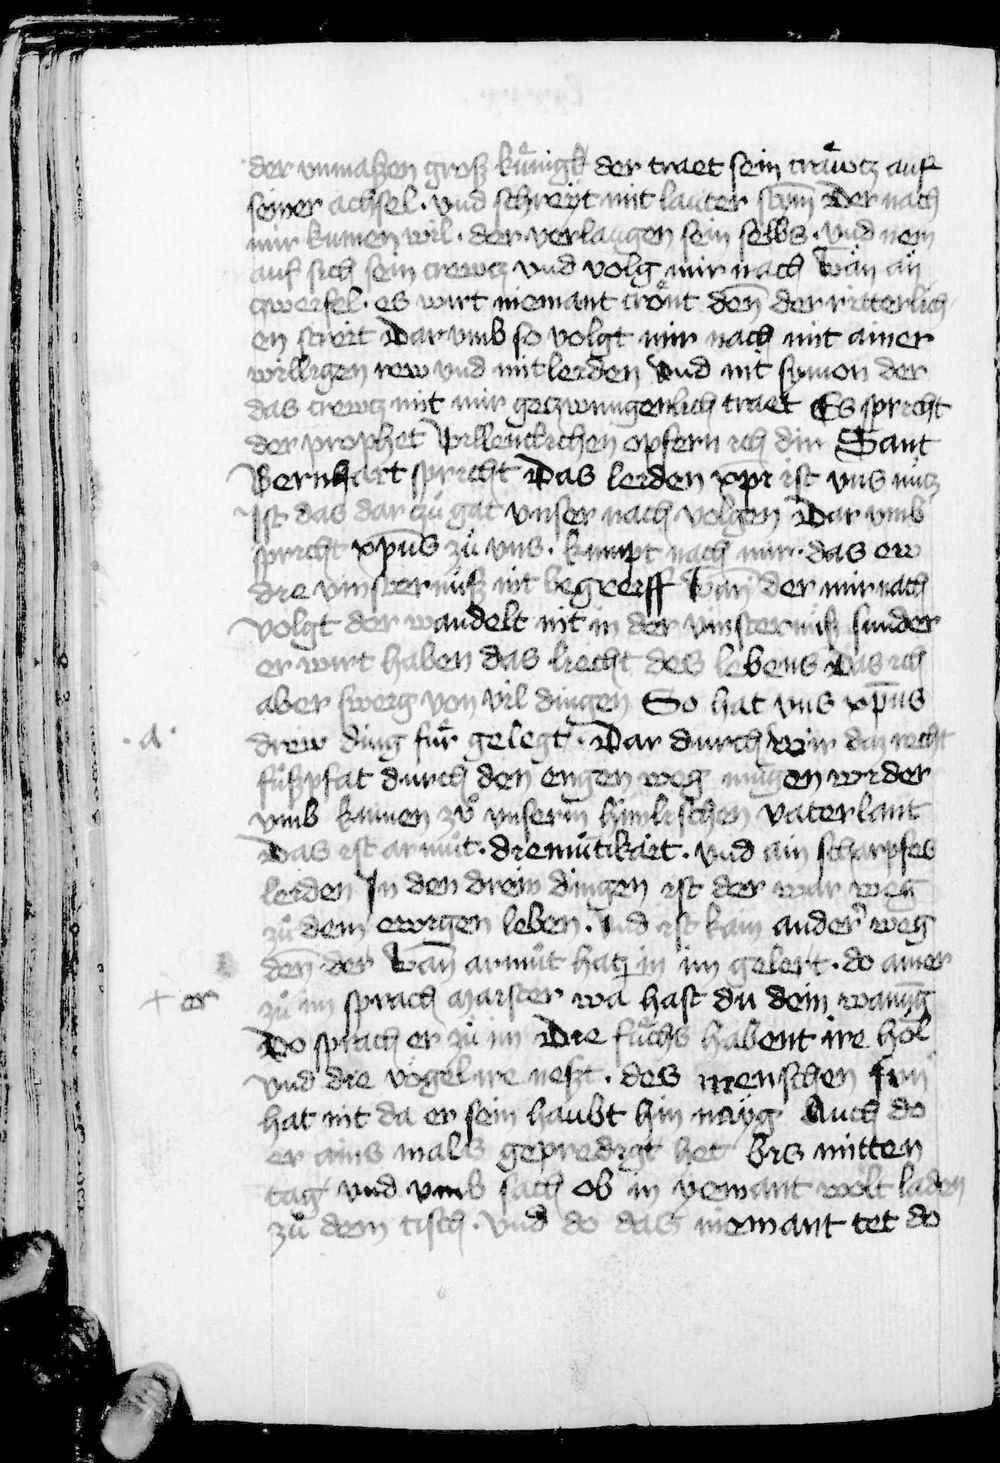 der vnmaßen groß kuͤnigk der traet sein craͤwtz auf
seiner achsel · vnd schreyt mit lauter stym̄ Der nach
mir kumen wil · der verlaugen sein selbs · vnd nem
auf sich sein crewtz vnd volg mir nach Wan an
zweifel · es wirt niemant croͤnt den̄ der ritterlich
en streit Dar vmb so volgt mir nach mit ainer
willigen rew vnd mitleiden vnd nit symon der
das crewtz mit mir getzwungenlich traet Es spricht
der prophet Willencklichen opfern ich dir Sant
Bernhart spricht Das leiden xpi ist vns nutz
Ist das dar zuͤ gat vnser nach volgen Dar vmb
spricht xp̄us zuͤ vns · kumpt nach mir · das ew
die vinsternuß nit begreiff Wan̄ der mir nach
volgt der wandelt nit in der vinsternuß sunder
er wirt haben das liecht des lebens Das ich
aber sweig von vil dingen So hat vns xp̄us
· a · drew ding fuͤr gelegt · Dar durch wir daz recht
fuͤßpfat durch den engen weg mugen wider
vmb kumen zuͦ vnserm himlischen vaterlant
Das ist armuͤt · diemuͤtikait · vnd ain scharpfes
leiden In den drein dingen ist der war weg
zuͦ dem ewigen leben · Vnd ist kain ander weg
den̄ der Wan̄ armuͤt hatz in im gelert · do ainer
+ er zuͦ im sprach Maister wa hast du dein wanūg
Do sprach er zuͦ im Die fuͤchs habent ire hol
vnd die vögel ire nest · des menschen sun
hat nit da er sein haubt hin nayg Auch do
er ains mals gepredigt het bis mitten
tag vnd vmb sach ob in yemant wölt laden
zuͦ dem tisch · vnd do das niemant tet do